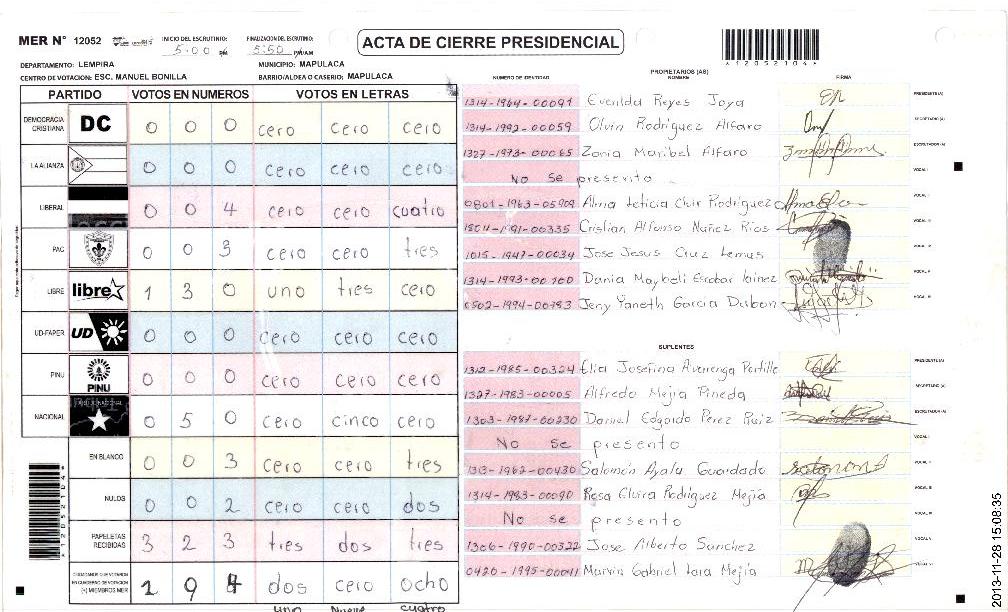 MER N° 12052
INICIO DEL ESCRUTINIO: 5:00 PM
FINALIZACION DEL ESCRUTINIO: 5:50 PM/AM
ACTA DE CIERRE PRESIDENCIAL
*12052104*
DEPARTAMENTO: LEMPIRA
MUNICIPIO: MAPULACA
CENTRO DE VOTACION: ESC. MANUEL BONILLA
BARRIO/ALDEA O CASERIO: MAPULACA
PARTIDO VOTOS EN NUMEROS VOTOS EN LETRAS
DEMOCRACIA CRISTIANA DC 0 0 0 cero cero cero
LA ALIANZA 0 0 0 cero cero cero
LIBERAL 0 0 4 cero cero cuatro
PAC 0 0 3 cero cero tres
LIBRE libre 1 3 0 uno tres cero
UD-FAPER UD 0 0 0 cero cero cero
PINU PINU 0 0 0 cero cero cero
NACIONAL 0 5 0 cero cinco cero
EN BLANCO 0 0 3 cero cero tres
NULOS 0 0 2 cero cero dos
PAPELETAS RECIBIDAS 3 2 3 tres dos tres
CIUDADANOS QUE VOTARON EN CUADERNO DE VOTACION (+) MIEMBROS MER 1 9 4 dos cero ocho
uno nueve cuatro
NUMERO DE IDENTIDAD
PROPIETARIOS (AS)
NOMBRE
FIRMA
1314-1964-00091 Evenilda Reyes Joya PRESIDENTE (A)
1314-1992-00059 Olvin Rodriguez Alfaro SECRETARIO (A)
1327-1973-00065 Zonia Maribel Alfaro ESCRUTADOR (A)
No Se presento VOCAL I
0801-1963-05909 Alma Leticia Rodriguez
Cristian Alfonso Nuñez Rios
1015-1947-00034 Jose Jesus Cruz Lemus
1314-1993-00100 Dania Maybeli Escobar Lainez
0502-1994-00783 Jeny Yaneth Garcia Dubon
SUPLENTES
1312-1985-00324 Elia Josefina Avarenga Portillo PRESIDENTE (A)
1327-1983-00005 Alfredo Mejia Pineda SECRETARIO (A)
1303-1987-00230 Daniel Edgardo Perez Ruiz ESCRUTADOR (A)
No Se presento VOCAL I
1313-1962-00430 Salomón Ayala Guardado
1314-1983-00090 Rosa Elvira Rodriguez Mejía
No Se presento
1306-1990-00322 Jose Alberto Sanchez
0420-1995-00041 Marvin Gabriel Lara Mejía
*12052104*
2013-11-28 15:08:35